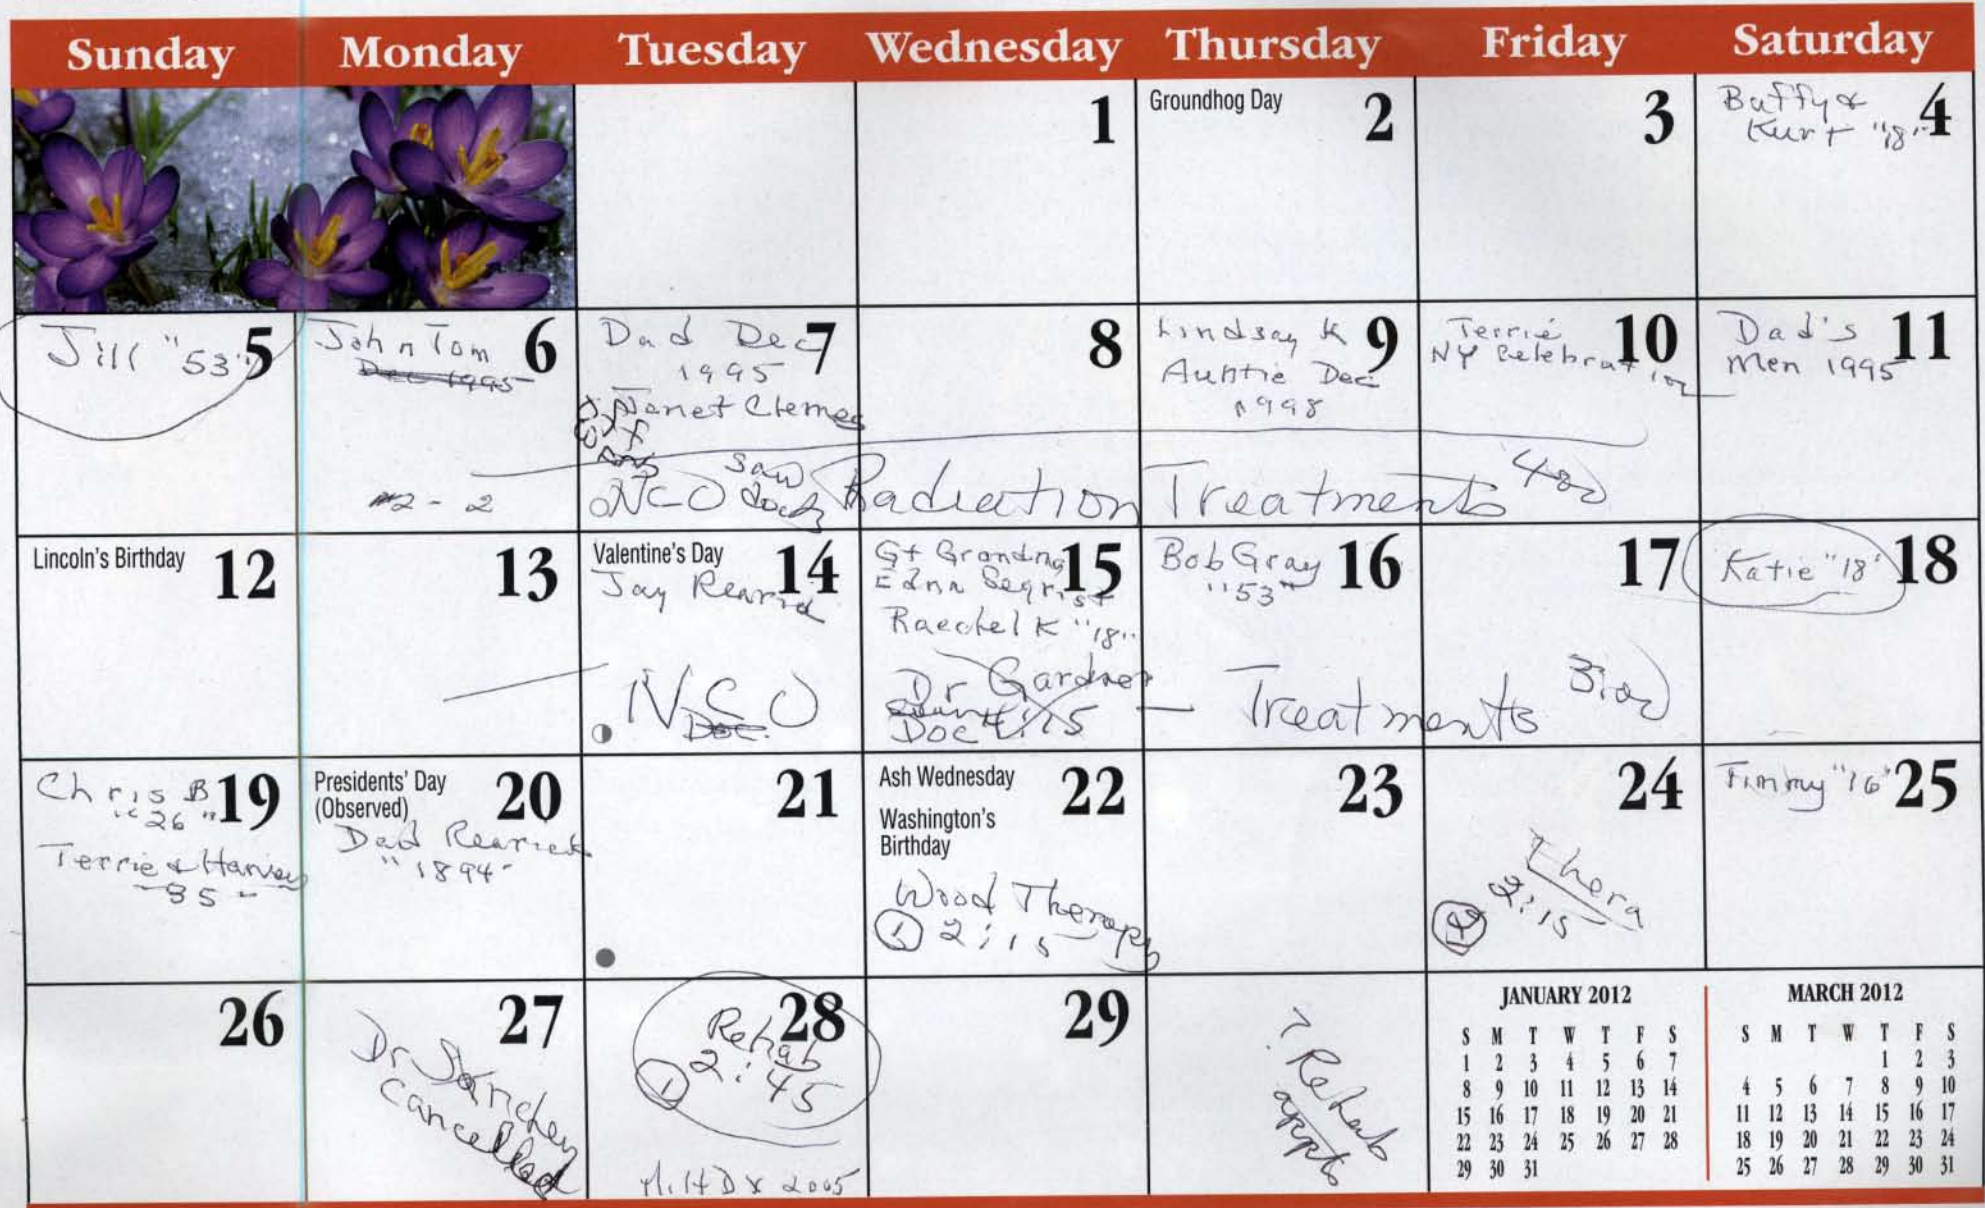 Sunday Monday Tuesday Wednesday Thursday Friday Saturday
1
Groundhog Day 2
3
Buffy & 4
Kurt "18"
Jill "53" 5
John Tom 6
Dec 1995
2 - 2
Dad Dec 7
1995
Janet Clemes
NCO saw
8
Lindsay K 9
Auntie Dec
1998
Radiation Treatments
Terrie 10
NY Celebration
Dad's 11
Mem 1995
Lincoln's Birthday 12
13
Valentine's Day 14
Jay Rearick
NCO
Doc.
Gt Grandma 15
Edna Segrist
Raechel K "18"
Dr Gardner
Doc 4:15
Bob Gray 16
"53"
Treatments
17
Katie "18" 18
Chris B 19
"26"
Terrie & Harvey
"35"
Presidents' Day 20
(Observed)
Dad Rearick
"1894"
21
Ash Wednesday 22
Washington's
Birthday
Wood Therapy
1 2:15
23
24
Thera
2 2:15
Timmy "16" 25
26
27
Dr
Cancelled
28
Rehab
1 2:45
Milt Dx 2005
29
? Rehab
appts
JANUARY 2012
S M T W T F S
1 2 3 4 5 6 7
8 9 10 11 12 13 14
15 16 17 18 19 20 21
22 23 24 25 26 27 28
29 30 31
MARCH 2012
S M T W T F S
1 2 3
4 5 6 7 8 9 10
11 12 13 14 15 16 17
18 19 20 21 22 23 24
25 26 27 28 29 30 31